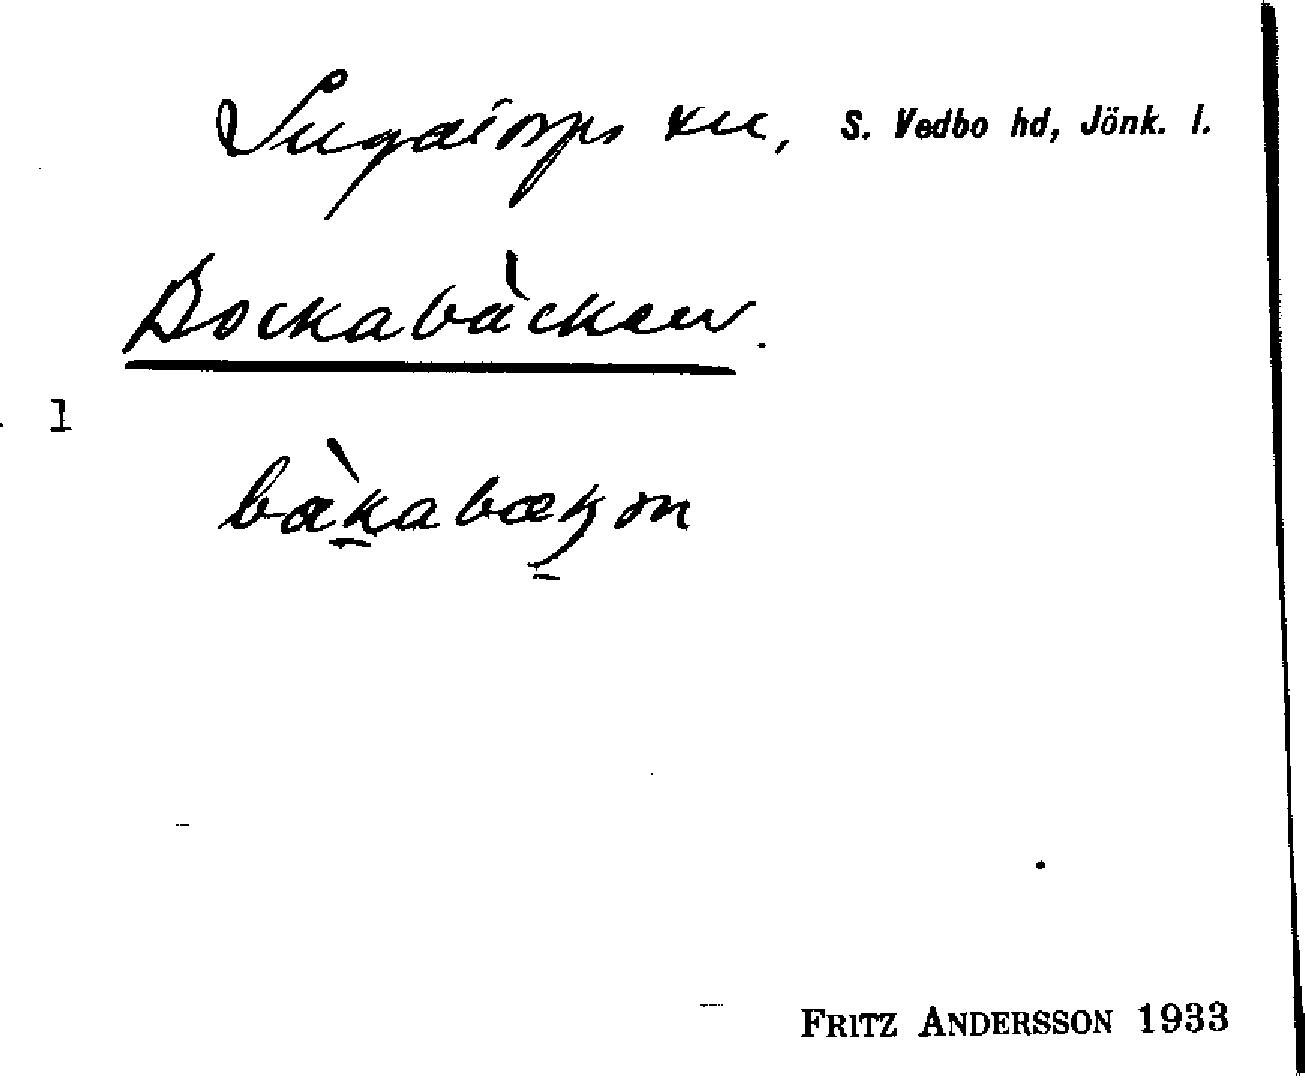 Ingatorps sn, S. Vedbo hd, Jönk. l.
Bockabäcken.
1
FRITZ ANDERSSON 1933